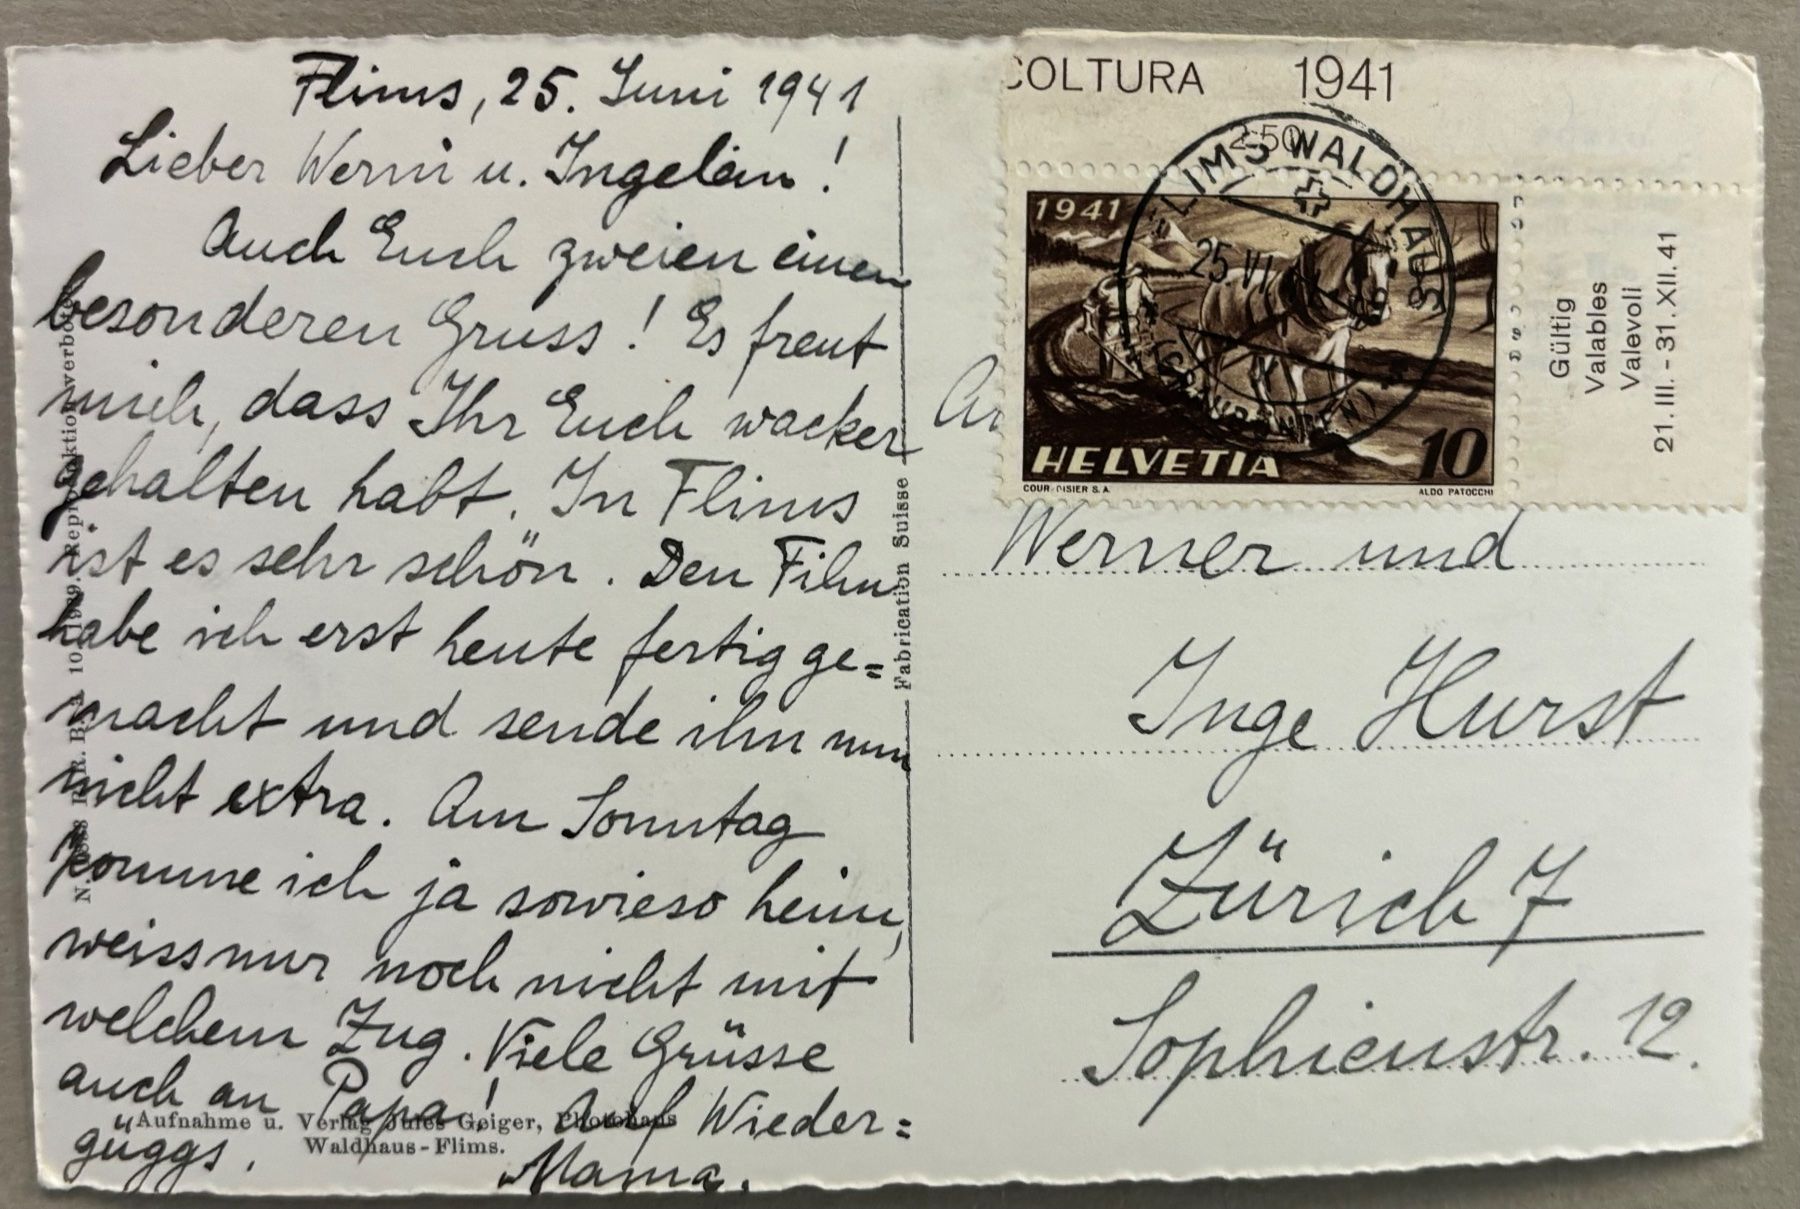 Flims, 25. Juni 1941
Lieber Werni u. Ingelein!
Auch Euch zweien einen
besonderen Gruss! Es freut
mich, dass Ihr Euch wacker
gehalten habt. In Flims
ist es sehr schön. Den Film
habe ich erst heute fertig ge=
macht und sende ihn nun
nicht extra. Am Sonntag
komme ich ja sowieso heim,
weiss nur noch nicht mit
welchem Zug. Viele Grüsse
auch an Papa! Auf Wieder=
güggs.
Mama.
Aufnahme u. Verlag Jules Geiger, Photohaus
Waldhaus-Flims.
Reproduktion verboten
Fabrication Suisse
COLTURA 1941
2.50
FLIMS WALDHAUS
25.VI
(GRAUBÜNDEN)
1941
HELVETIA 10
COUR. DISIER S. A.
ALDO PATOCCHI
Gültig
Valables
Valevoli
21. III. - 31. XII. 41
Werner und
Inge Hurst
Zürich 7
Sophienstr. 12.